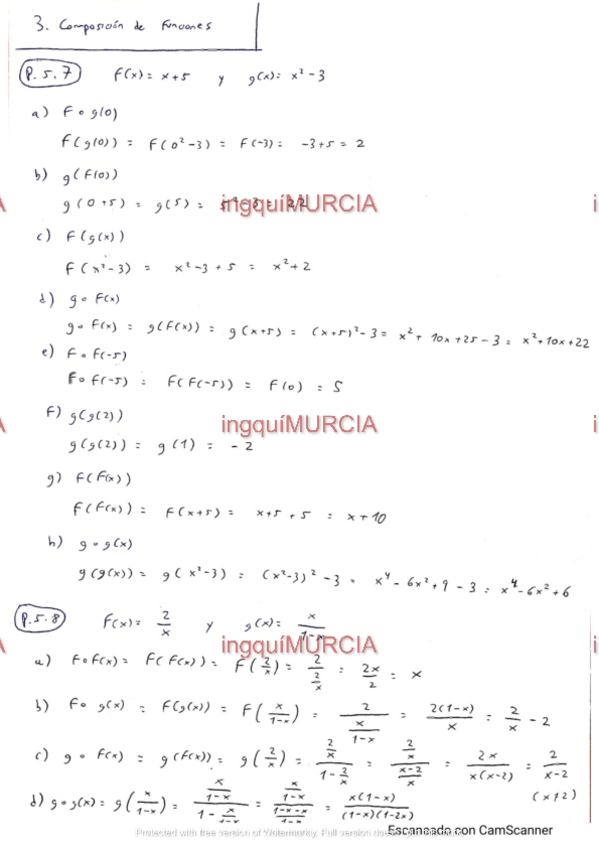 3. Composición de Funciones
P.5.7 F(x) = x+5 y g(x) = x² - 3
a) F ∘ g(0)
F(g(0)) = F(0² - 3) = F(-3) = -3+5 = 2
b) g(F(0))
g(0+5) = g(5) = 5² - 3 = 22
ingquíMURCIA
c) F(g(x))
F(x² - 3) = x² - 3 + 5 = x² + 2
d) g ∘ F(x)
g ∘ F(x) = g(F(x)) = g(x+5) = (x+5)² - 3 = x² + 10x + 25 - 3 = x² + 10x + 22
e) F ∘ F(-5)
F ∘ F(-5) = F(F(-5)) = F(0) = 5
F) g(g(2))
ingquíMURCIA
g(g(2)) = g(1) = -2
g) F(F(x))
F(F(x)) = F(x+5) = x+5+5 = x+10
h) g ∘ g(x)
g(g(x)) = g(x² - 3) = (x² - 3)² - 3 = x⁴ - 6x² + 9 - 3 = x⁴ - 6x² + 6
P.5.8 F(x) = 2/x y g(x) = x/(1-x)
ingquíMURCIA
a) F ∘ F(x) = F(F(x)) = F(2/x) = 2/(2/x) = 2x/2 = x
b) F ∘ g(x) = F(g(x)) = F(x/(1-x)) = 2/(x/(1-x)) = 2(1-x)/x = 2/x - 2
c) g ∘ F(x) = g(F(x)) = g(2/x) = (2/x)/(1 - 2/x) = (2/x)/((x-2)/x) = 2x/(x(x-2)) = 2/(x-2)
(x≠2)
d) g ∘ g(x) = g(x/(1-x)) = (x/(1-x))/(1 - x/(1-x)) = (x/(1-x))/((1-x-x)/(1-x)) = x(1-x)/((1-x)(1-2x))
Protected with free version of Watermarkly. Full version doesn't put this mark.
Escaneado con CamScanner